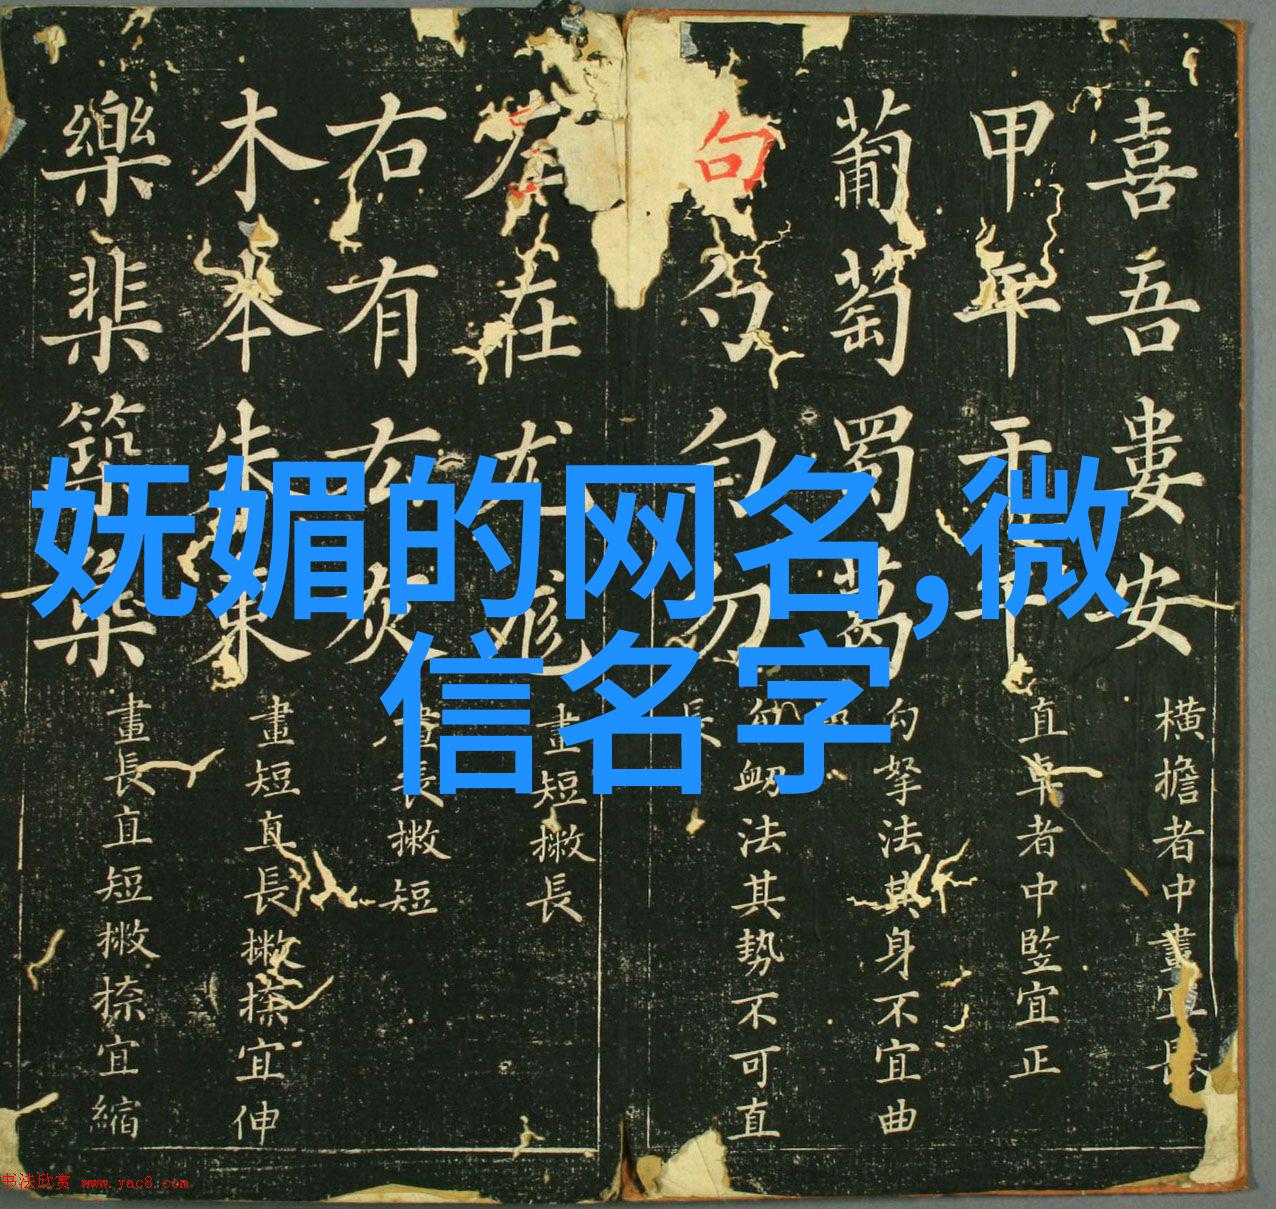 妩媚的网名,微
信名字
喜吾婁安橫擔者中畫宜長
甲年干直者中竪宜正
葡萄蜀葛勾拏法其身不宜曲
句勿法其勢不可直
左在尤尨畫短撇長
右有灰畫長撇短
木本朱畫短直長撇捺宜伸
樂棐築畫長直短撇捺宜縮
书法欣赏 www.yac8.com